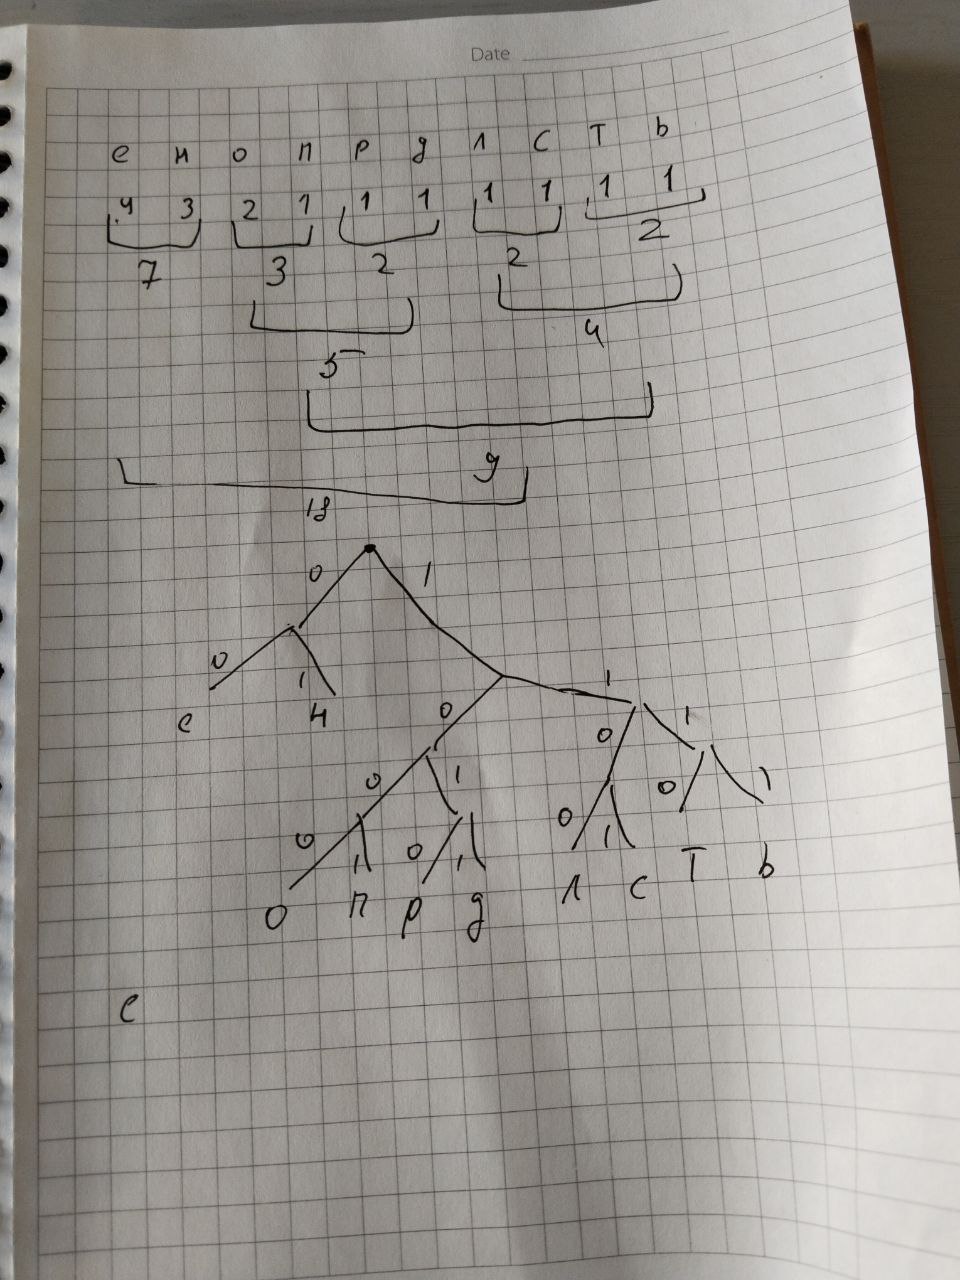 Date
е н о п р д л с т ь
4 3 2 1 1 1 1 1 1 1
7 3 2 2 2
5 4
9
18
0 1
0 1 0 1
е н 0 1 0 1
0 1 0 1 0 1 0 1
о п р д л с т ь
е